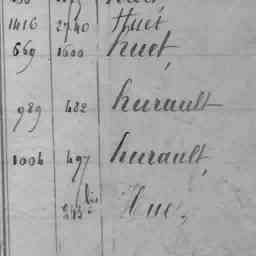 1416 2740 Huet
669 1600 huet
989 482 hurault
1004 497 hurault
bis
Hue